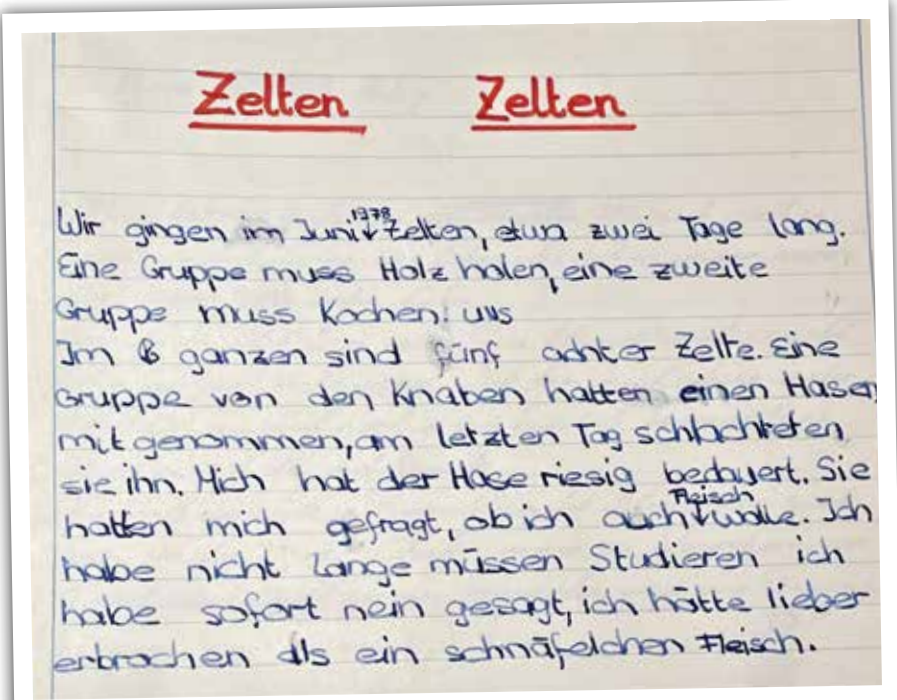 Zelten Zelten
Wir gingen im Juni 1978 Zelten, etwa zwei Tage lang.
Eine Gruppe muss Holz holen, eine zweite
Gruppe muss Kochen. uvs
Im ganzen sind fünf achter Zelte. Eine
Gruppe von den Knaben hatten einen Hasen
mitgenommen, am letzten Tag schlachteten
sie ihn. Mich hat der Hase riesig bedauert. Sie
hatten mich gefragt, ob ich auch Fleisch wolle. Ich
habe nicht lange müssen Studieren ich
habe sofort nein gesagt, ich hätte lieber
erbrochen als ein schnäfelchen Fleisch.